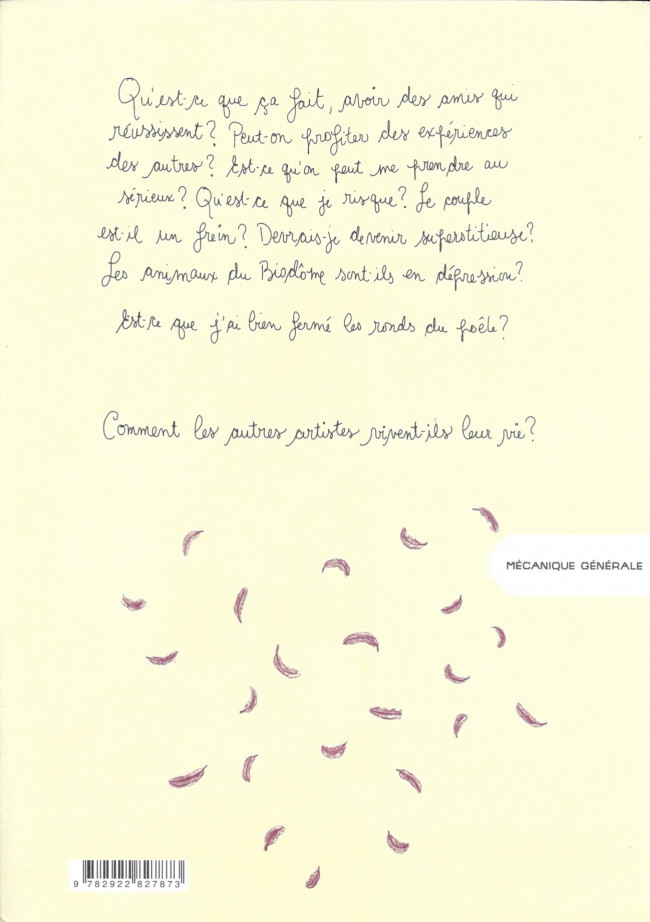 Qu'est-ce que ça fait, avoir des amis qui
réussissent? Peut-on profiter des expériences
des autres? Est-ce qu'on peut me prendre au
sérieux? Qu'est-ce que je risque? Le couple
est-il un frein? Devrais-je devenir superstitieuse?
Les animaux du Biodôme sont-ils en dépression?
Est-ce que j'ai bien fermé les ronds du poêle?
Comment les autres artistes vivent-ils leur vie?
MÉCANIQUE GÉNÉRALE
9 782922 827873